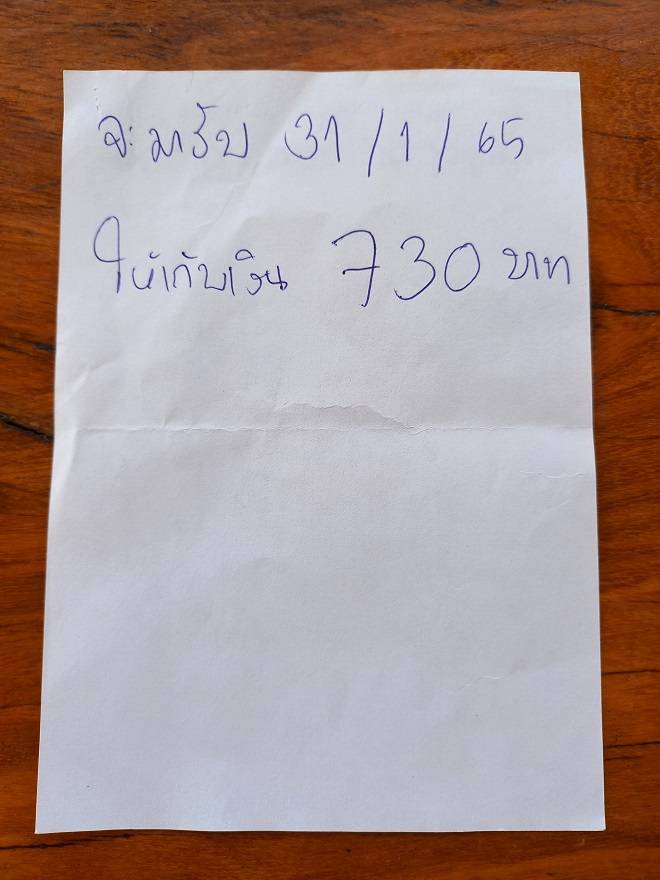 จะมารับ 31/1/65
ให้เก็บเงิน 730 บาท